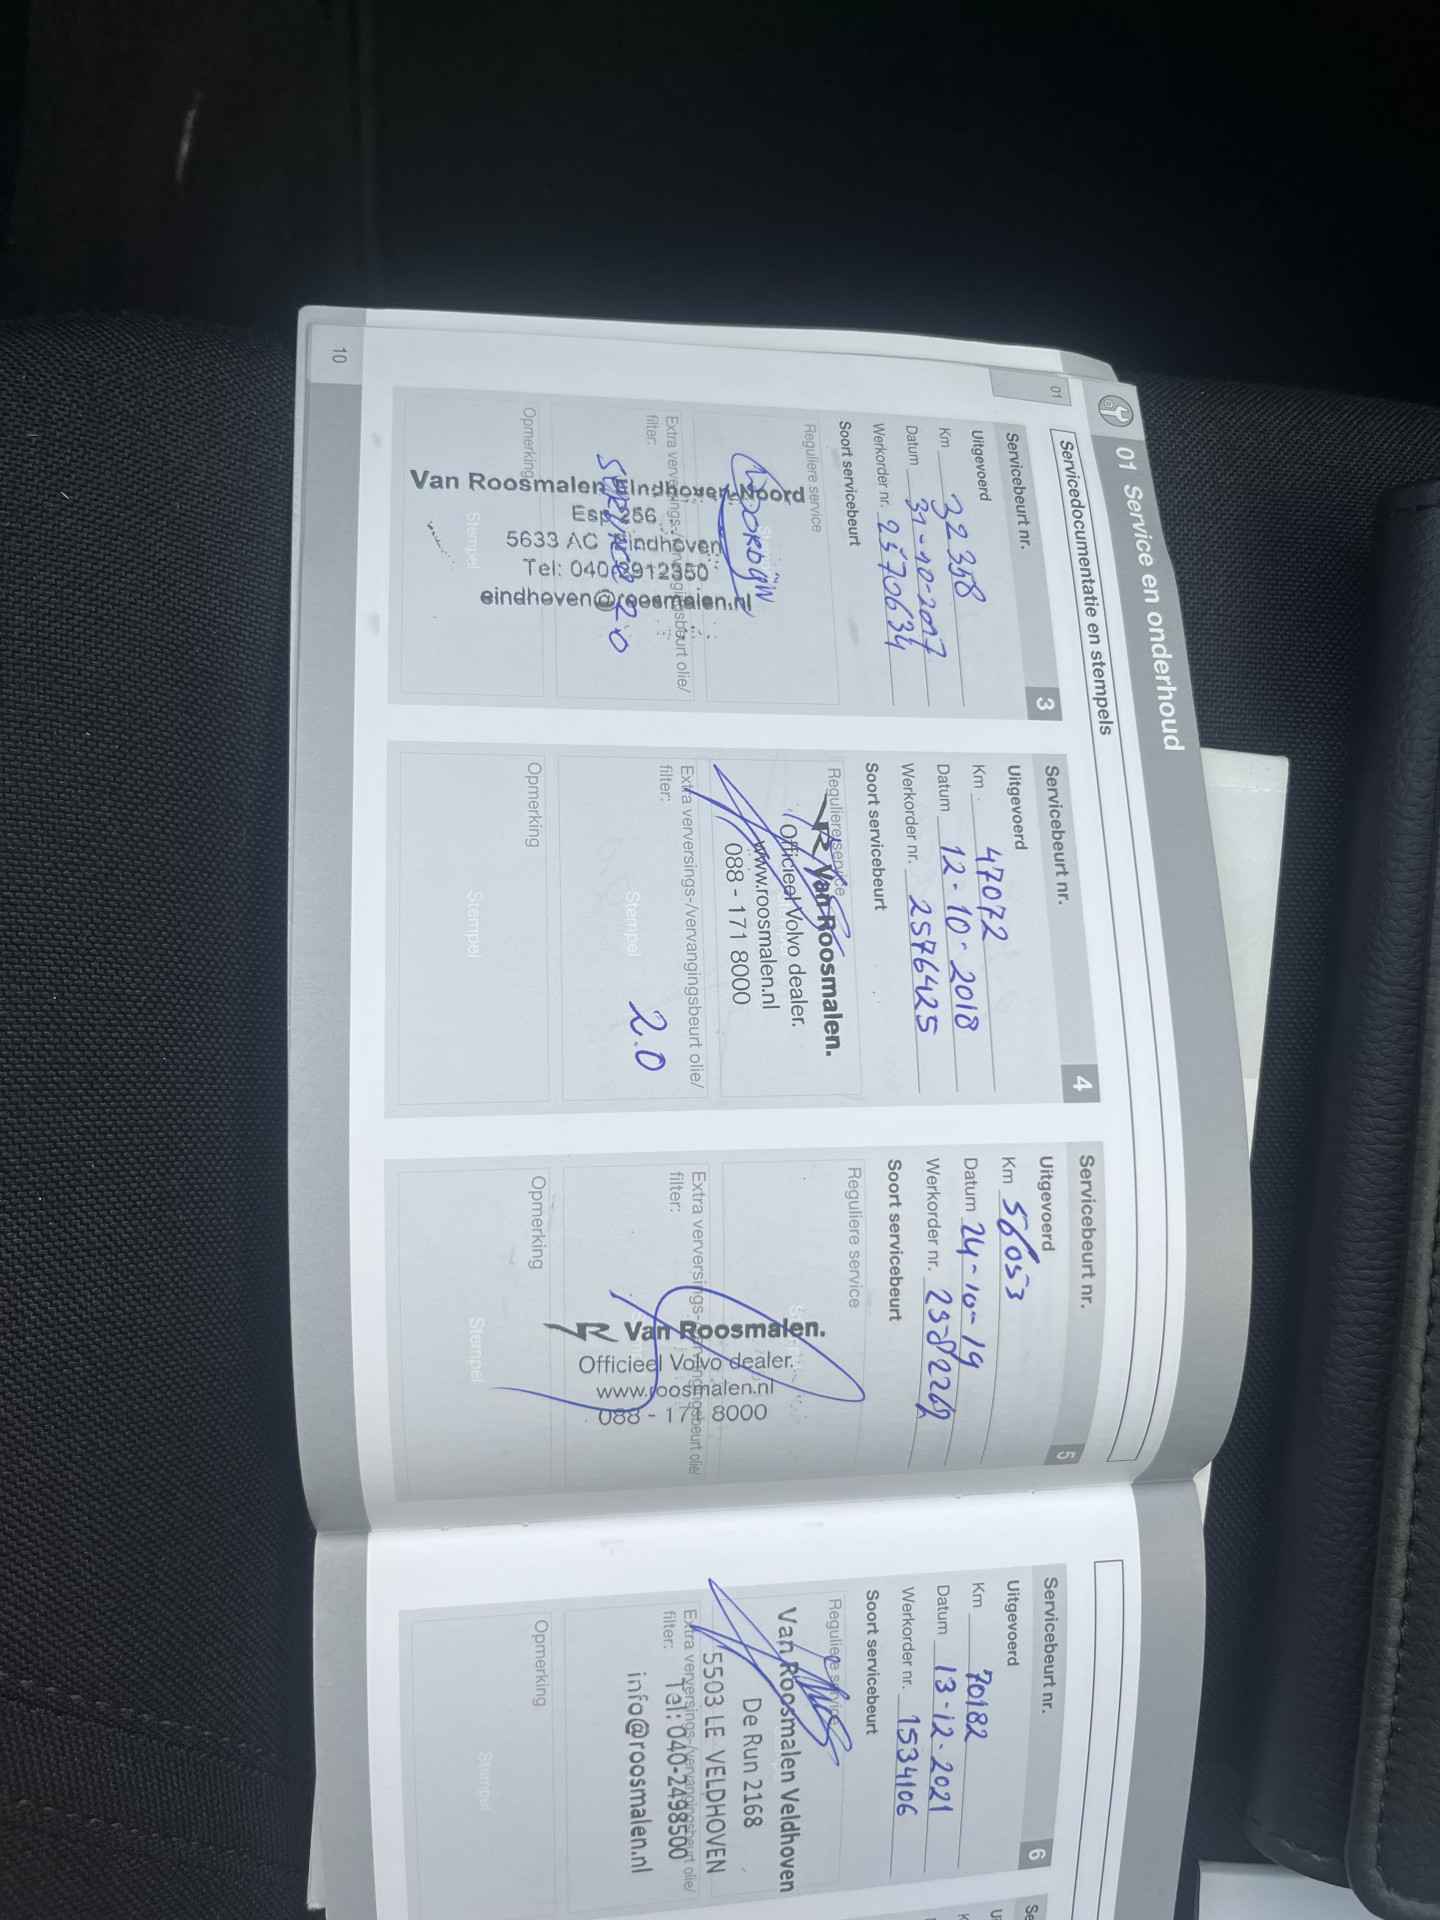 01 Service en onderhoud
01
Servicedocumentatie en stempels
Servicebeurt nr. 3
Uitgevoerd
Km 32358
Datum 31-10-2017
Werkorder nr. 2570634
Soort servicebeurt
Reguliere service
Extra verversings-/vervangingsbeurt olie/
filter:
Van Roosmalen Eindhoven-Noord
Esp 256
5633 AC Eindhoven
Tel: 040-2912350
eindhoven@roosmalen.nl
2.0
Opmerking
Stempel
Servicebeurt nr. 4
Uitgevoerd
Km 47072
Datum 12-10-2018
Werkorder nr. 2576425
Soort servicebeurt
Reguliere service
Van Roosmalen.
Officieel Volvo dealer.
www.roosmalen.nl
088 - 171 8000
Extra verversings-/vervangingsbeurt olie/
filter:
Stempel
2.0
Opmerking
Stempel
Servicebeurt nr. 5
Uitgevoerd
Km 56053
Datum 24-10-19
Werkorder nr.
Soort servicebeurt
Reguliere service
Extra verversings-/vervangingsbeurt olie/
filter:
Van Roosmalen.
Officieel Volvo dealer.
www.roosmalen.nl
088 - 171 8000
Opmerking
Stempel
10
Servicebeurt nr. 6
Uitgevoerd
Km 70182
Datum 13-12-2021
Werkorder nr. 1534106
Soort servicebeurt
Reguliere service
Van Roosmalen Veldhoven
De Run 2168
5503 LE VELDHOVEN
Extra verversings-/vervangingsbeurt olie/
filter:
Tel: 040-2498500
info@roosmalen.nl
Opmerking
Stempel